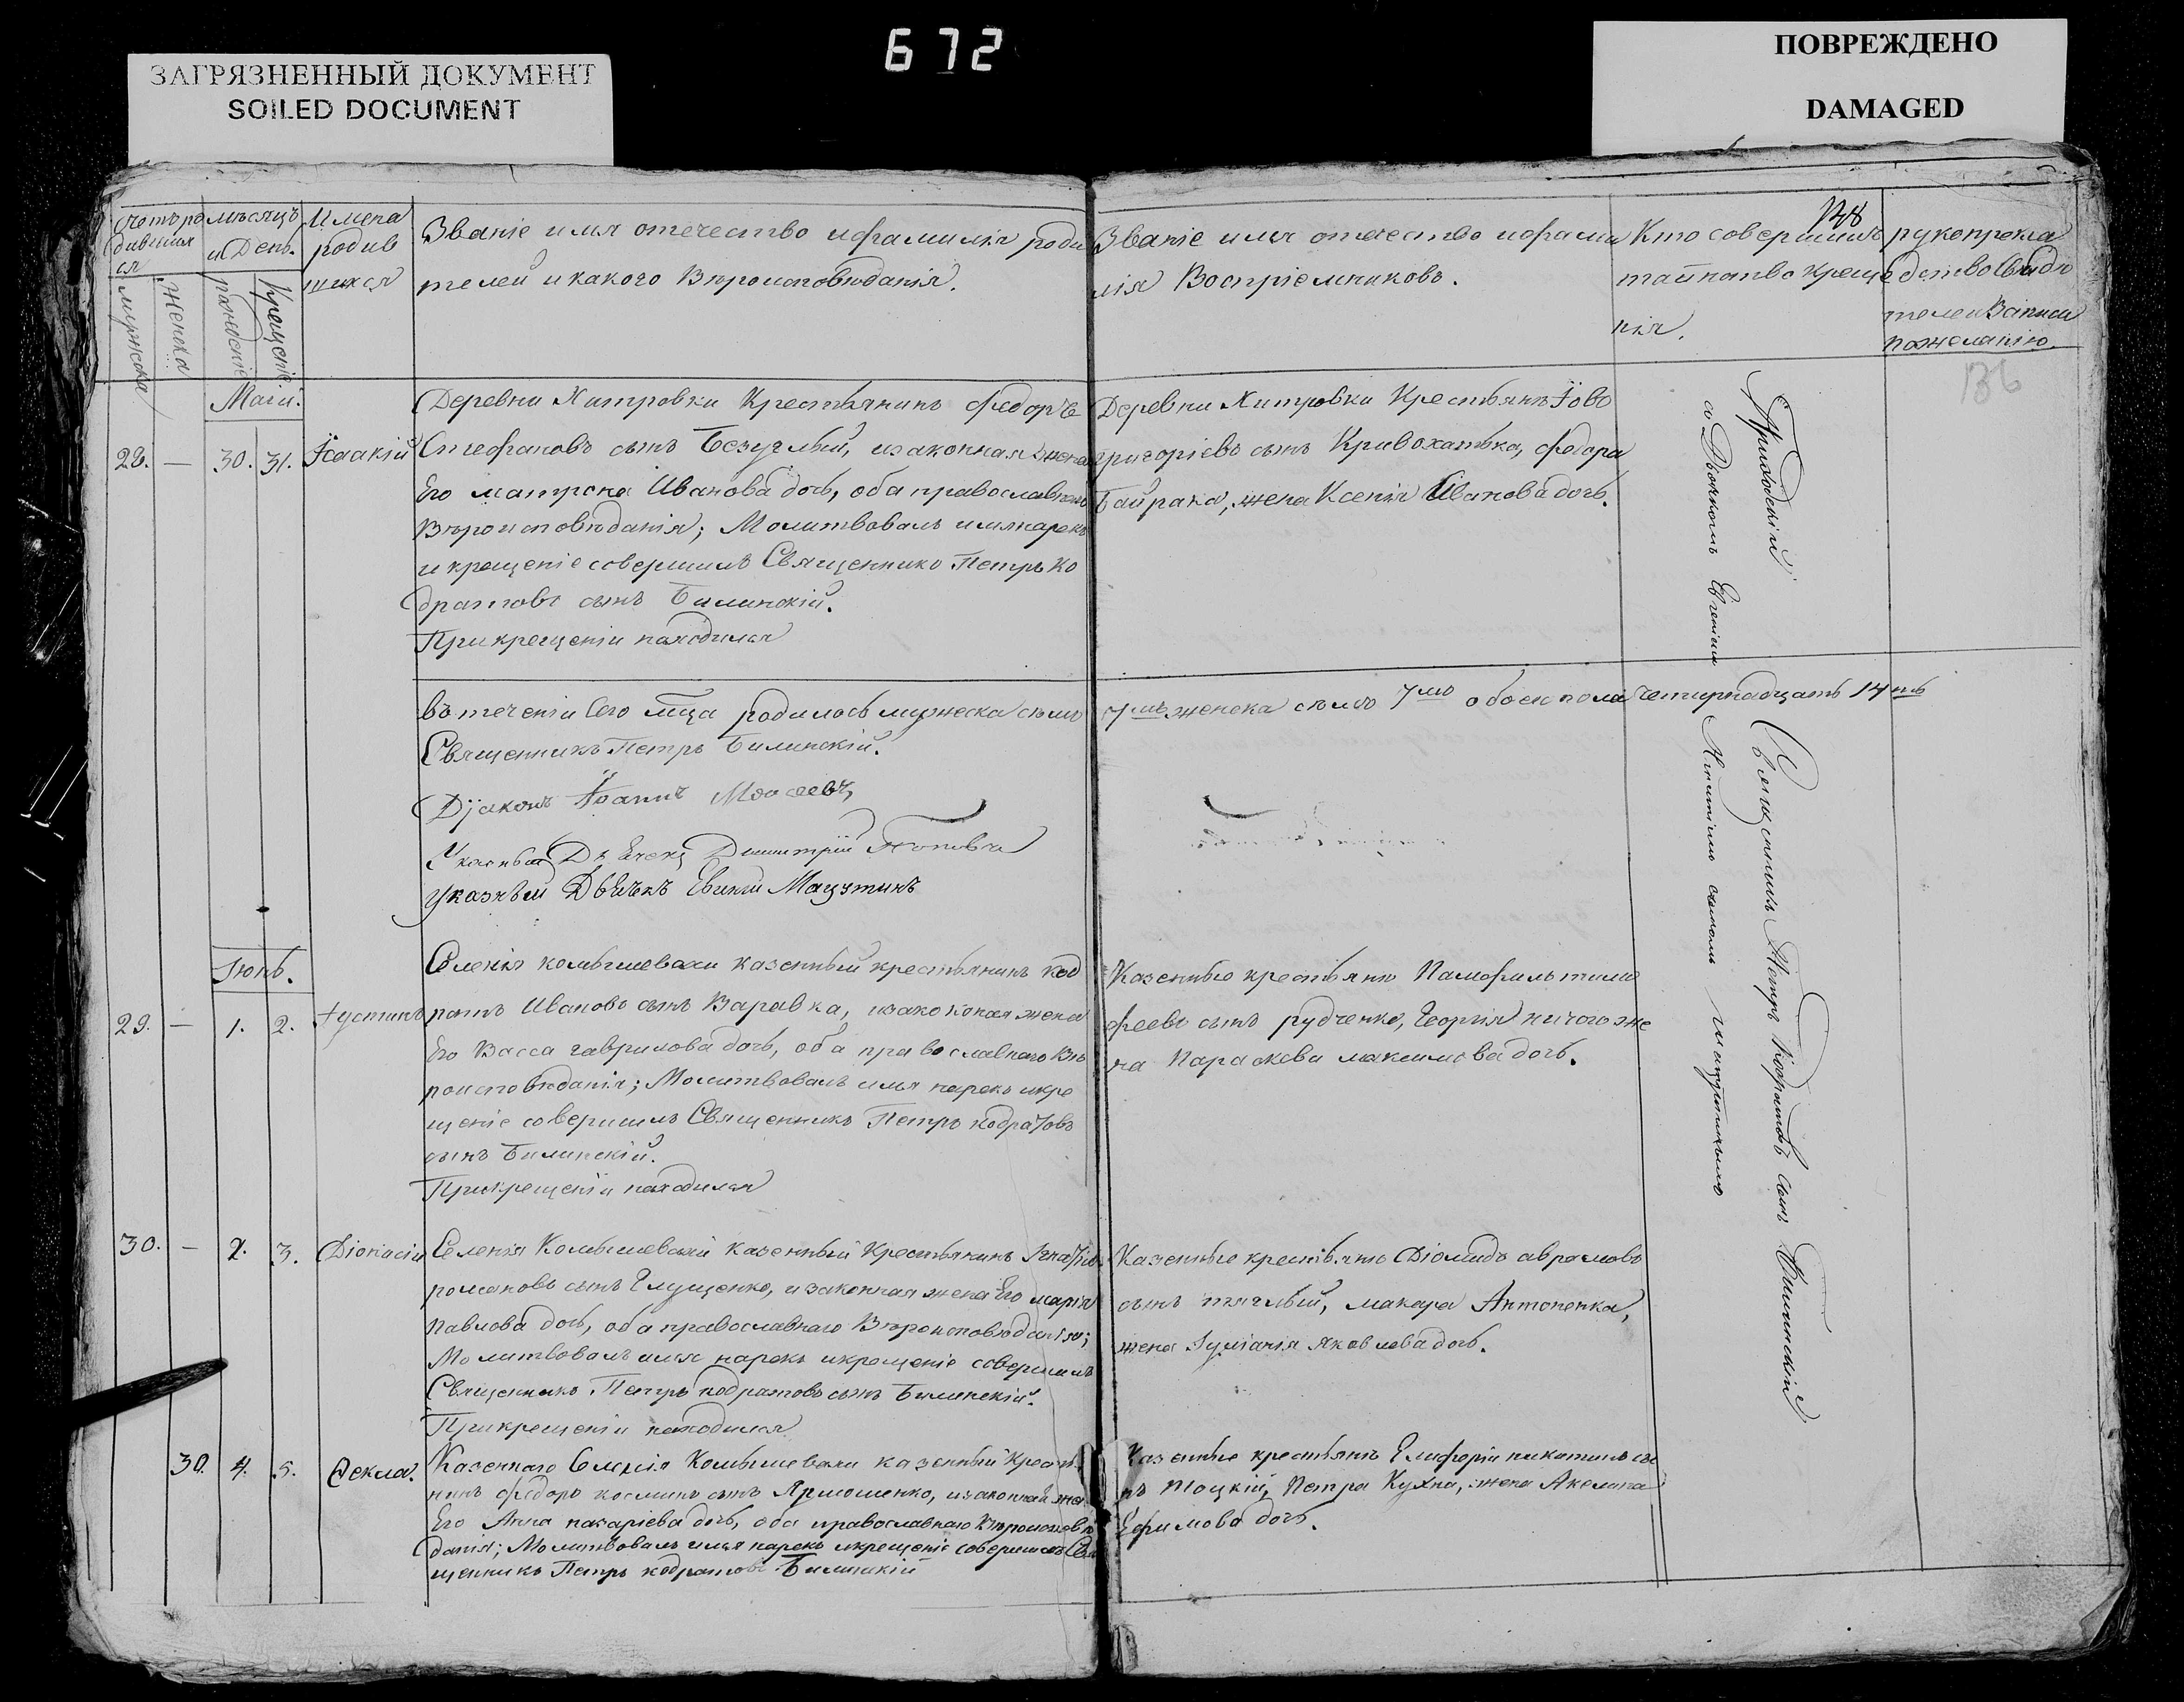 672
ЗАГРЯЗНЕННЫЙ ДОКУМЕНТ
SOILED DOCUMENT
ПОВРЕЖДЕНО
DAMAGED
138
136
счетъ ро
дивших
ся
мужеска
женска
мѣсяцъ
и День.
рожденіе
Крещеніе.
Имена
родив
шихся
Званіе имя отечество и фамилія роди
телей и какого Вѣроисповѣданія.
Званіе имя отечество и фами
лія Воспріемниковъ.
Кто совершилъ
таинство Креще
нія.
рукоприкла
дство Свидѣ
телей Записи
по желанію.
Маія.
28. — 30. 31. Їсаакій
Деревни Хитровки Крестьянинъ Федоръ
Стефановъ сынъ Безуглый, и законная жена
Его матрона Иванова дочь, оба православнаго
Вѣроисповѣданія; Молитвовалъ имя нарекъ
и крещеніе совершилъ Священникъ Петръ Ко
дратовъ сынъ Билинскій.
При крещеніи находился
Деревни Хитровки Крестьянъ Їовъ
григоріевъ сынъ Кривохатька, федора
Байрака, жена Ксенія Иванова дочь.
въ теченіи Сего мца родилось мужеска семь
7мь женска семь 7мь обоего пола четырнадцать 14ть
Священникъ Петръ Билинскій.
Дїаконъ Їоаннъ Моѵсеевъ
Указный Дьячекъ Димитрій Поповъ
Указный Дьячекъ Евгеній Мацутинъ
Приходскій Священникъ Петръ Кодратовъ сынъ Билинскій
съ Дьячкомъ Евгеніемъ
сыномъ Мацутинымъ
Іюнь.
29. — 1. 2. Їустинъ
Селенія комышевахи казенный крестьянинъ код
ратъ Ивановъ сынъ Варавка, и законная жена
Его Васса гаврилова дочь, оба православнаго Вѣ
роисповѣданія; Молитвовалъ имя нарекъ и кре
щеніе совершилъ Священникъ Петръ кодратовъ
сынъ Билинскій.
При крещеніи находился
Казенные крестьяне Памфилъ тимо
феевъ сынъ рудченко, Георгія ничого же
на Параскева максимова дочь.
30. — 2. 3. Діонисій
Селенія Комышевахи казенный Крестьянинъ Игнатій
романовъ сынъ Глущенко, и законная жена Его марія
Павлова дочь, оба православнаго Вѣроисповѣданія;
Молитвовалъ имя нарекъ и крещеніе совершилъ
Священникъ Петръ кодратовъ сынъ Билинскій.
При крещеніи находился
Казенные крестьяне Діомидъ аврамовъ
сынъ тяглый, макара Антоненка,
жена Іуліанія Яковлева дочь.
30. 4. 5. Ѳекла.
Казеннаго Селенія Комышевахи казенный Крестья
нинъ федоръ косминъ сынъ Ярмошенко, и законная жена
Его Анна назаріева дочь, оба православнаго Вѣроисповѣ
данія; Молитвовалъ имя нарекъ и крещеніе совершилъ Свя
щенникъ Петръ кодратовъ Билинскій
Казенные крестьяне Елиферій никитинъ сы
нъ Тоцкій, Петра Кухна, жена Акелина
Ефимова дочь.